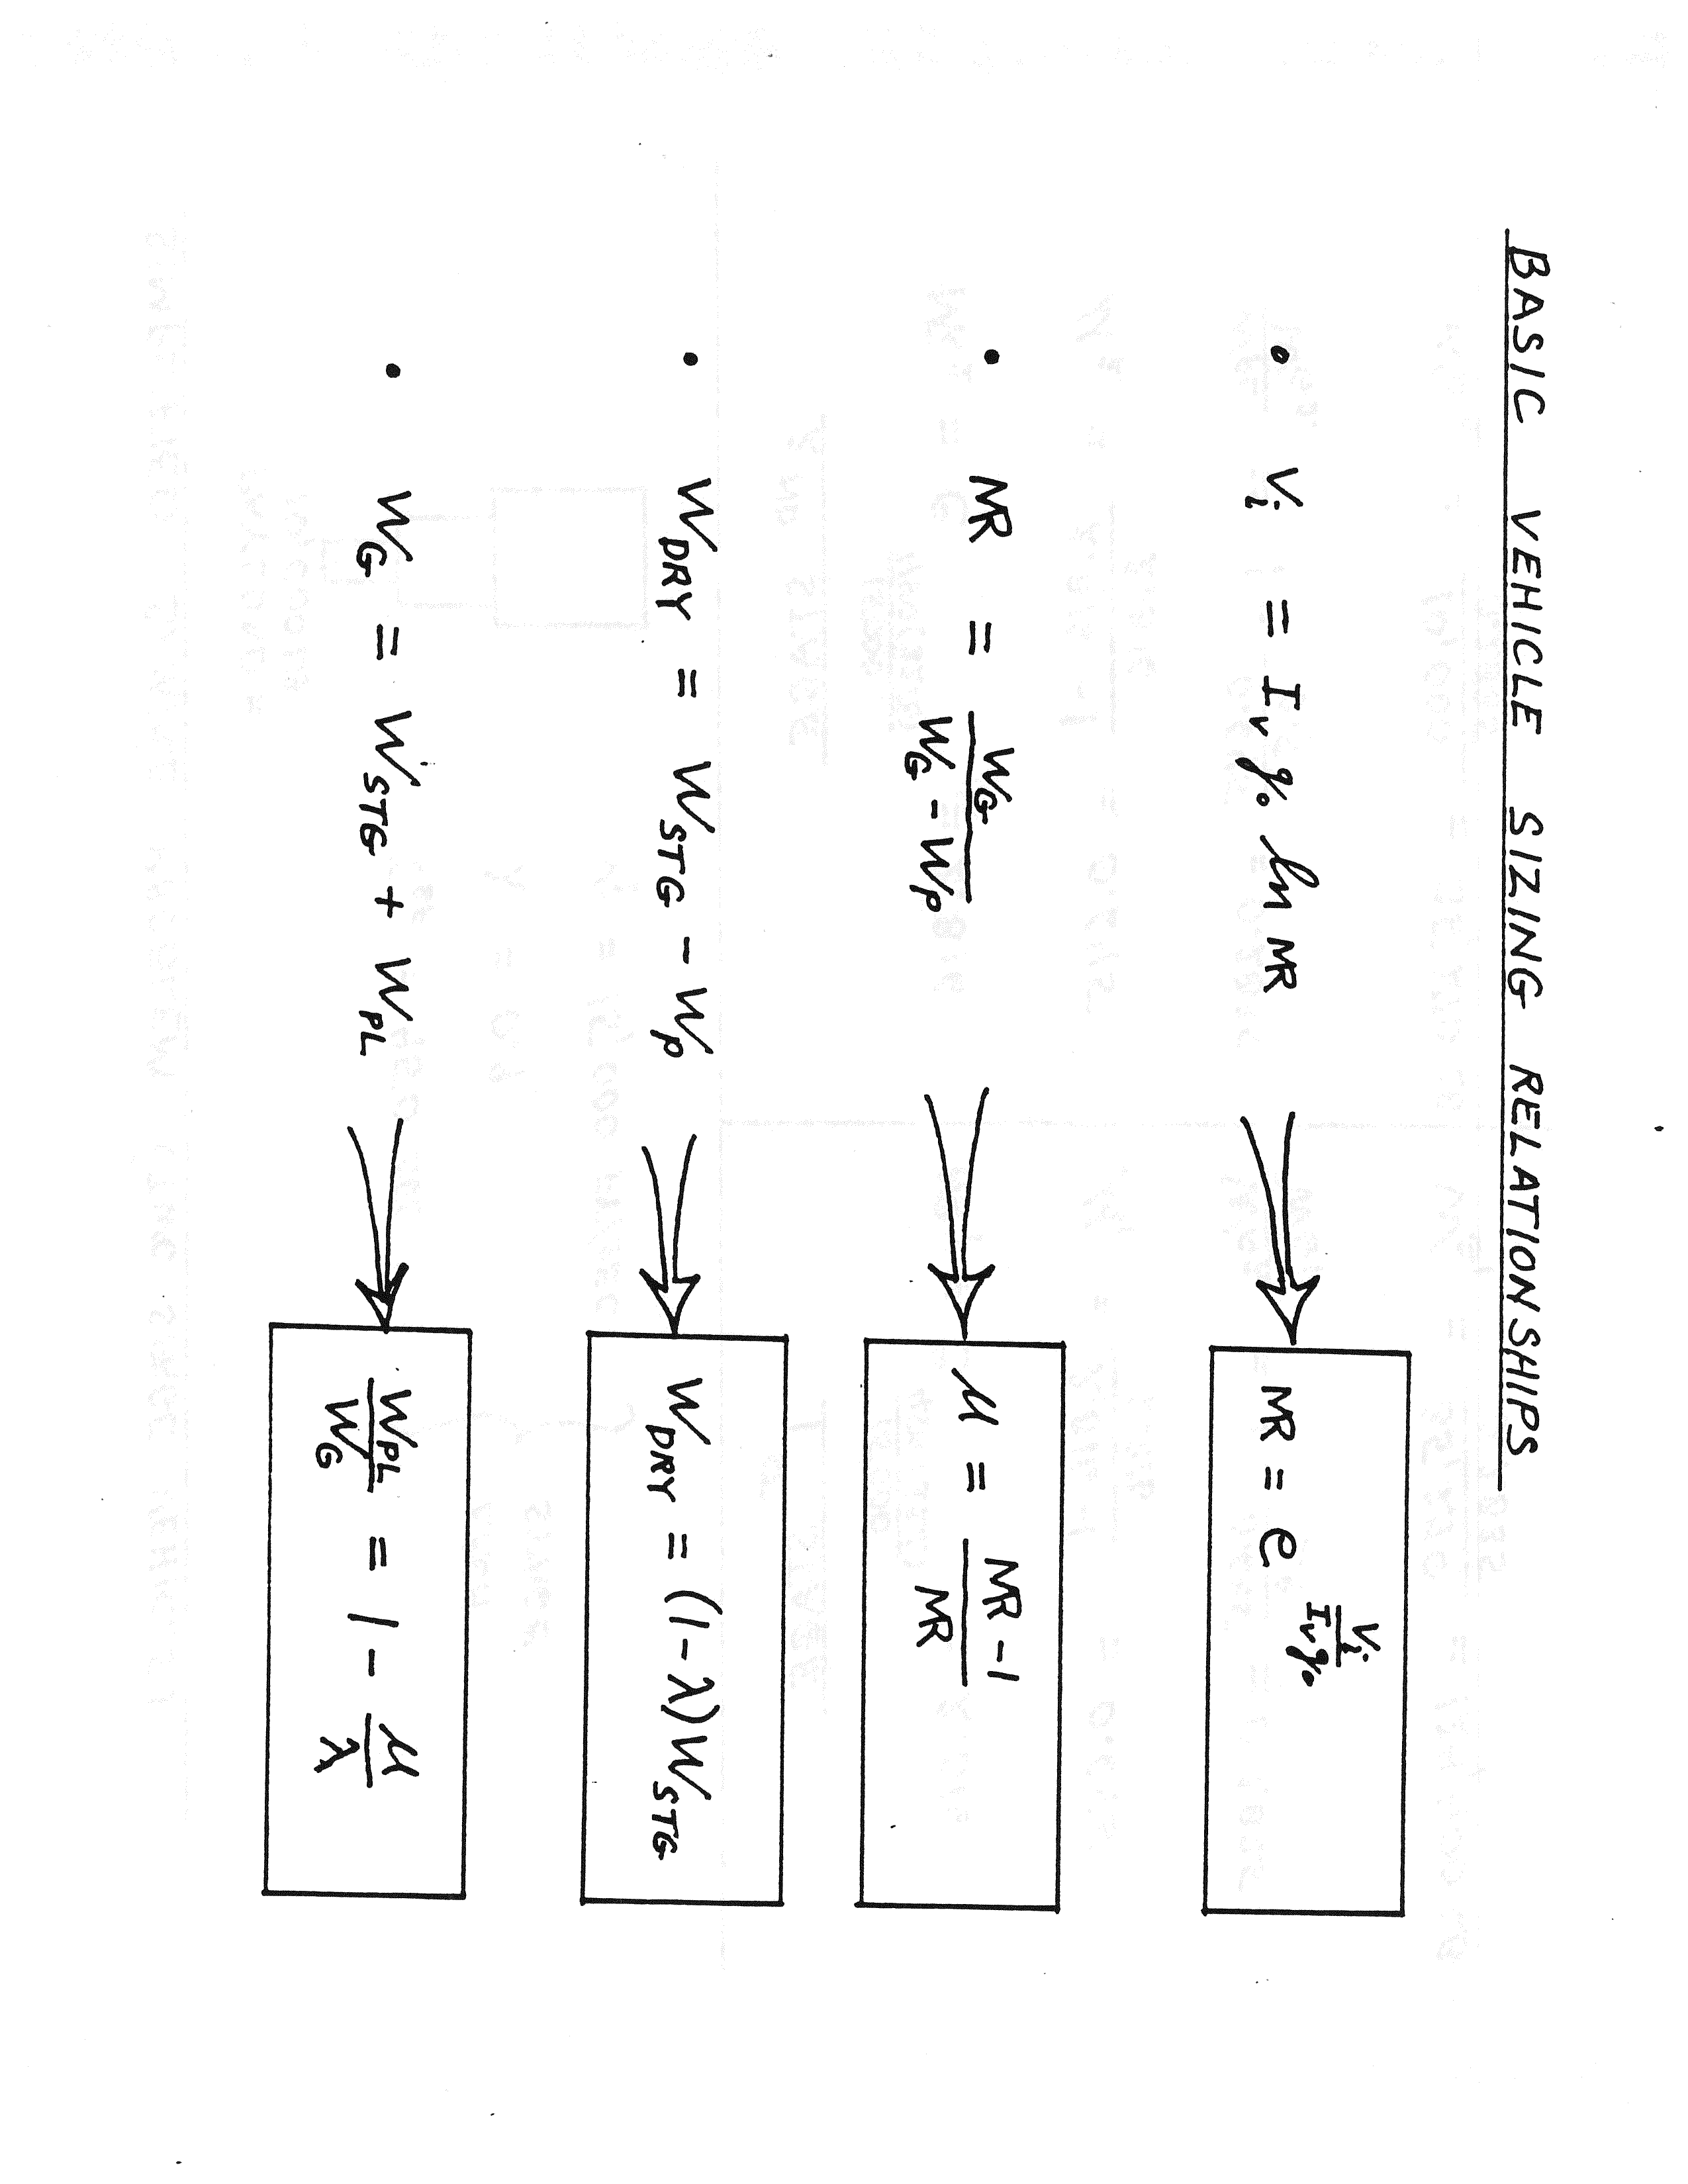 BASIC VEHICLE SIZING RELATIONSHIPS
• Vᵢ = Iᵥ g₀ ln MR ⇒ MR = e^(Vᵢ / Iᵥ g₀)
• MR = W_G / (W_G - W_P) ⇒ μ = (MR - 1) / MR
• W_DRY = W_STG - W_P ⇒ W_DRY = (1 - λ) W_STG
• W_G = W_STG + W_PL ⇒ W_PL / W_G = 1 - μ / λ